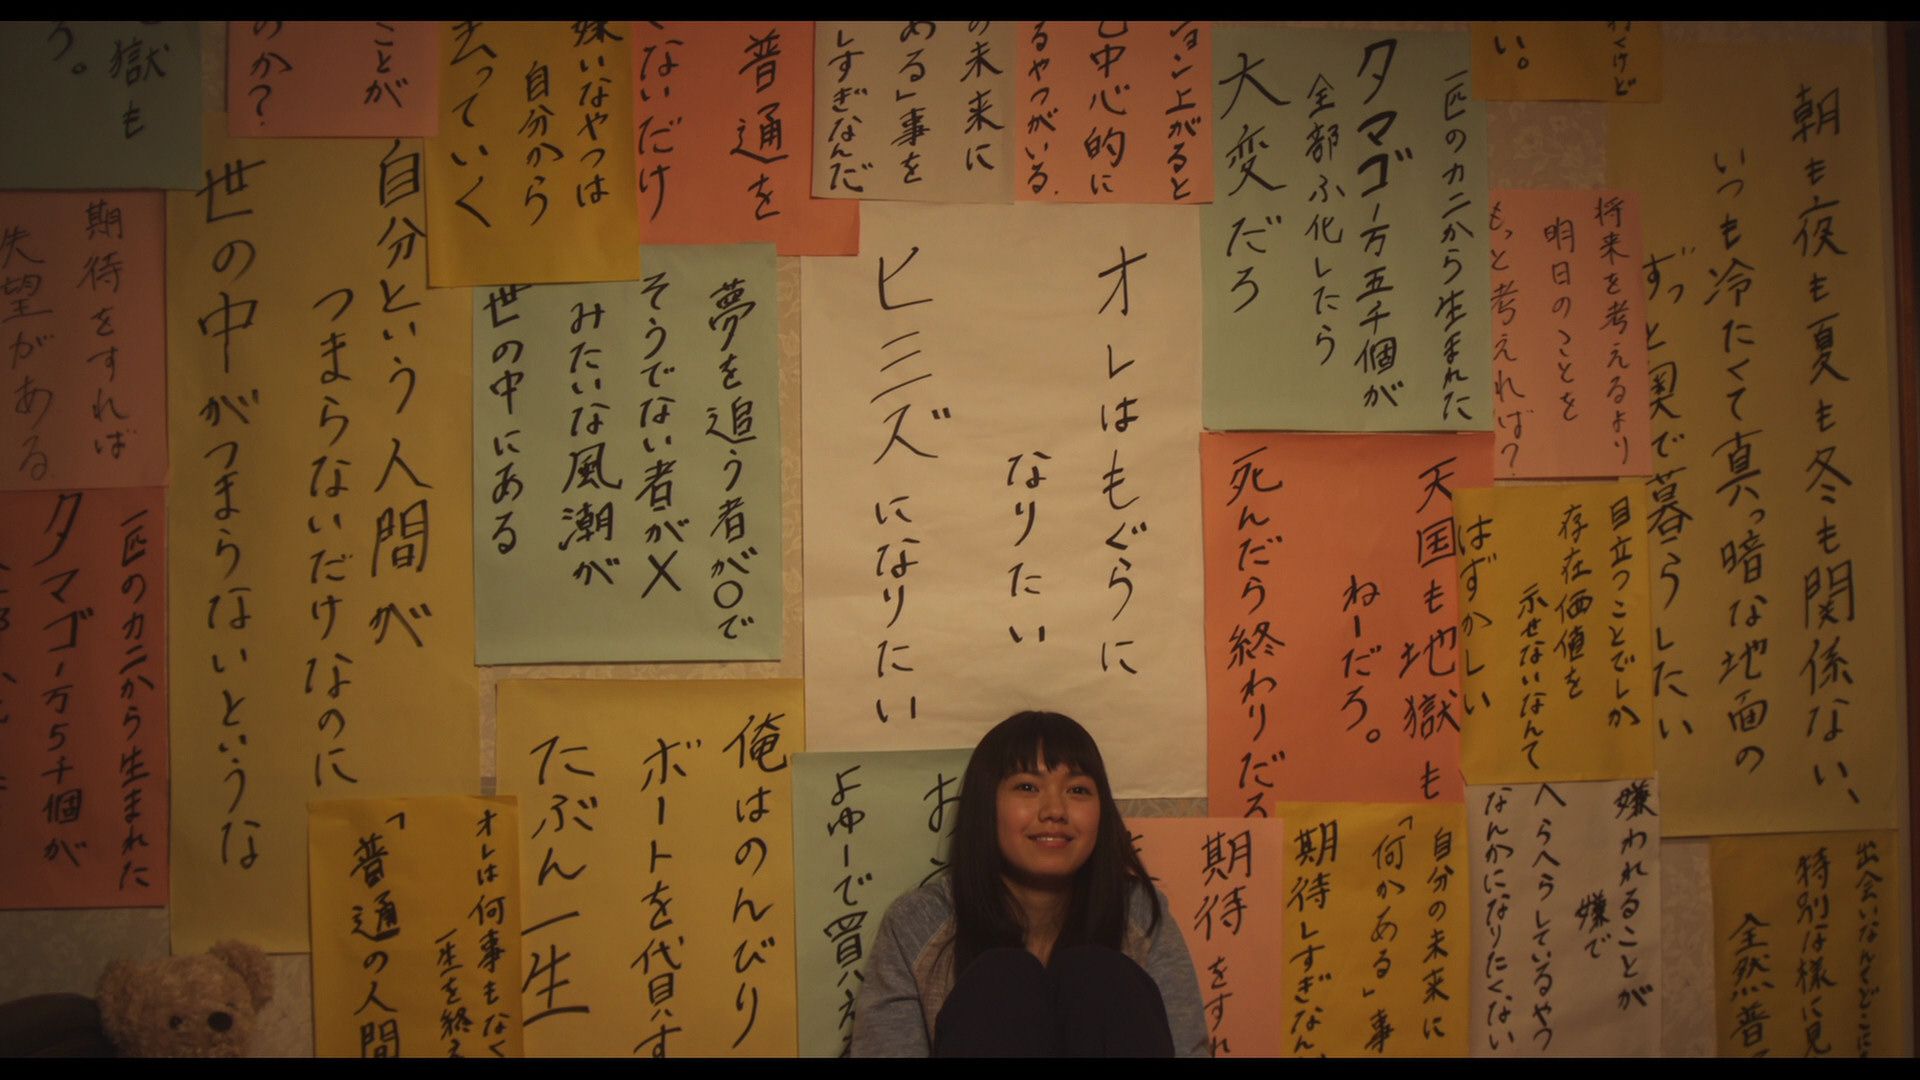 朝も夜も夏も冬も関係ない、
いつも冷たくて真っ暗な地面の
ずっと奥で暮らしたい
い。
将来を考えるより
明日のことを
もっと考えれば?
目立つことでしか
存在価値を
示せないなんて
はずかしい
嫌われることが
嫌で
へらへらしているやつ
なんかになりたくない
特別な様に見
全然普
一匹のカニから生まれた
タマゴ一万五千個が
全部ふ化したら
大変だろ
天国も地獄も
ねーだろ。
死んだら終わりだろ
自分の未来に
「何かある」事
期待しすぎなん
期待をすれ
ョン上がると
己中心的に
るやつがいる.
の未来に
ある」事を
しすぎなんだ
オレはもぐらに
なりたい
ヒミズになりたい
よゆーで買え
普通を
くないだけ
嫌いなやつは
自分から
去っていく
夢を追う者が〇で
そうでない者が×
みたいな風潮が
世の中にある
俺はのんびり
ボートを代貝す
たぶん一生
ことが
のか?
自分という人間が
つまらないだけなのに
世の中がつまらないというな
オレは何事もなく
一生を終え
「普通の人間
獄も
ろ。
期待をすれば
失望がある
一匹のカニから生まれた
タマゴ一万5千個が